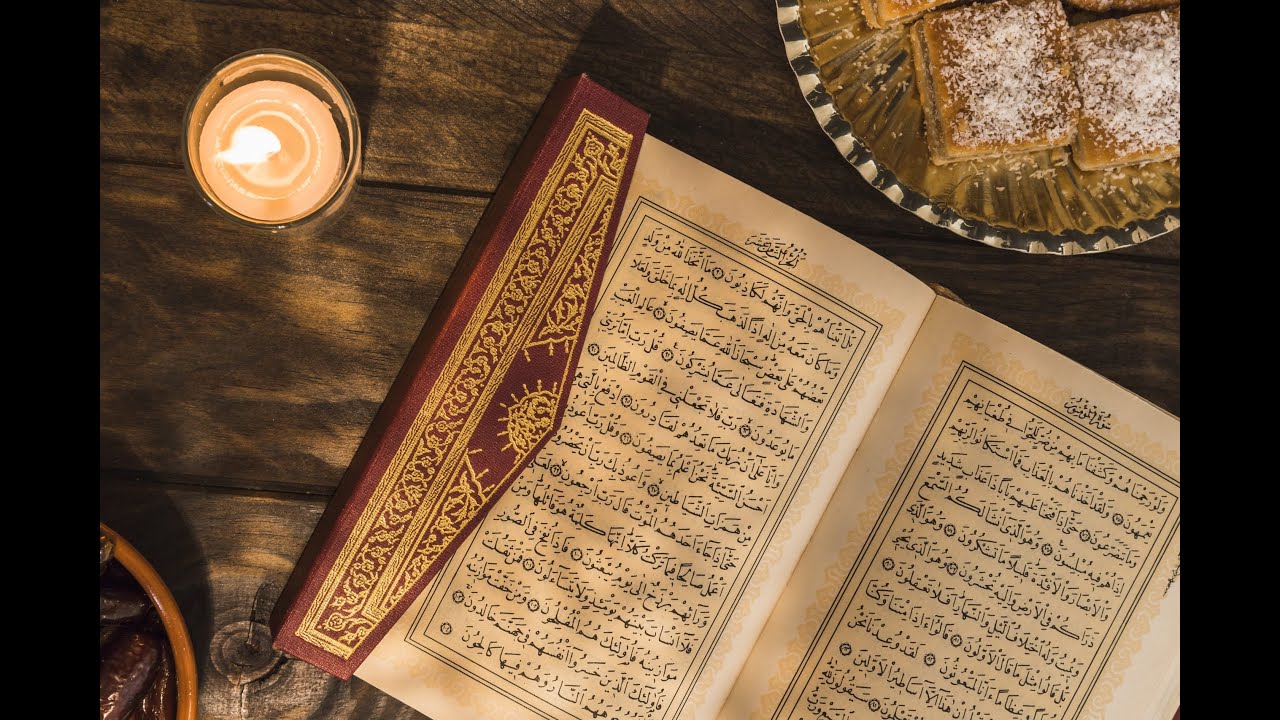 سورة المؤمنون
وَلَوْ رَحِمْنَاهُمْ وَكَشَفْنَا مَا بِهِمْ مِنْ ضُرٍّ لَلَجُّوا فِي طُغْيَانِهِمْ
يَعْمَهُونَ ﴿٧٥﴾ وَلَقَدْ أَخَذْنَاهُمْ بِالْعَذَابِ فَمَا اسْتَكَانُوا لِرَبِّهِمْ
وَمَا يَتَضَرَّعُونَ ﴿٧٦﴾ حَتَّى إِذَا فَتَحْنَا عَلَيْهِمْ بَابًا ذَا عَذَابٍ شَدِيدٍ
إِذَا هُمْ فِيهِ مُبْلِسُونَ ﴿٧٧﴾ وَهُوَ الَّذِي أَنْشَأَ لَكُمُ السَّمْعَ
وَالْأَبْصَارَ وَالْأَفْئِدَةَ قَلِيلًا مَا تَشْكُرُونَ ﴿٧٨﴾ وَهُوَ الَّذِي
ذَرَأَكُمْ فِي الْأَرْضِ وَإِلَيْهِ تُحْشَرُونَ ﴿٧٩﴾ وَهُوَ الَّذِي يُحْيِي
وَيُمِيتُ وَلَهُ اخْتِلَافُ اللَّيْلِ وَالنَّهَارِ أَفَلَا تَعْقِلُونَ ﴿٨٠﴾
بَلْ قَالُوا مِثْلَ مَا قَالَ الْأَوَّلُونَ ﴿٨١﴾ قَالُوا أَئِذَا مِتْنَا وَكُنَّا
تُرَابًا وَعِظَامًا أَئِنَّا لَمَبْعُوثُونَ ﴿٨٢﴾ لَقَدْ وُعِدْنَا نَحْنُ
إِنْ هَذَا إِلَّا أَسَاطِيرُ الْأَوَّلِينَ ﴿٨٣﴾
سَيَقُولُونَ لِلَّهِ
الجزء الثامن عشر
بَلْ أَتَيْنَاهُمْ بِالْحَقِّ وَإِنَّهُمْ لَكَاذِبُونَ ﴿٩٠﴾ مَا اتَّخَذَ اللَّهُ مِنْ وَلَدٍ
وَمَا كَانَ مَعَهُ مِنْ إِلَهٍ إِذًا لَذَهَبَ كُلُّ إِلَهٍ بِمَا خَلَقَ وَلَعَلَا
بَعْضُهُمْ عَلَى بَعْضٍ سُبْحَانَ اللَّهِ عَمَّا يَصِفُونَ ﴿٩١﴾ عَالِمِ الْغَيْبِ
وَالشَّهَادَةِ فَتَعَالَى عَمَّا يُشْرِكُونَ ﴿٩٢﴾ قُلْ رَبِّ إِمَّا تُرِيَنِّي
مَا يُوعَدُونَ ﴿٩٣﴾ رَبِّ فَلَا تَجْعَلْنِي فِي الْقَوْمِ الظَّالِمِينَ ﴿٩٤﴾
وَإِنَّا عَلَى أَنْ نُرِيَكَ مَا نَعِدُهُمْ لَقَادِرُونَ ﴿٩٥﴾ ادْفَعْ بِالَّتِي هِيَ
أَحْسَنُ السَّيِّئَةَ نَحْنُ أَعْلَمُ بِمَا يَصِفُونَ ﴿٩٦﴾ وَقُلْ رَبِّ أَعُوذُ بِكَ
مِنْ هَمَزَاتِ الشَّيَاطِينِ ﴿٩٧﴾ وَأَعُوذُ بِكَ رَبِّ أَنْ يَحْضُرُونِ ﴿٩٨﴾
حَتَّى إِذَا جَاءَ أَحَدَهُمُ الْمَوْتُ قَالَ رَبِّ ارْجِعُونِ ﴿٩٩﴾ لَعَلِّي
أَعْمَلُ صَالِحًا فِيمَا تَرَكْتُ كَلَّا إِنَّهَا كَلِمَةٌ هُوَ قَائِلُهَا وَمِنْ
وَرَائِهِمْ بَرْزَخٌ إِلَى يَوْمِ يُبْعَثُونَ ﴿١٠٠﴾ فَإِذَا نُفِخَ فِي الصُّورِ
فَلَا أَنْسَابَ بَيْنَهُمْ يَوْمَئِذٍ وَلَا يَتَسَاءَلُونَ ﴿١٠١﴾ فَمَنْ ثَقُلَتْ
مَوَازِينُهُ فَأُولَئِكَ هُمُ الْمُفْلِحُونَ ﴿١٠٢﴾ وَمَنْ خَفَّتْ مَوَازِينُهُ
فَأُولَئِكَ الَّذِينَ خَسِرُوا أَنْفُسَهُمْ فِي جَهَنَّمَ خَالِدُونَ ﴿١٠٣﴾
النَّارُ وَهُمْ فِيهَا كَالِحُونَ